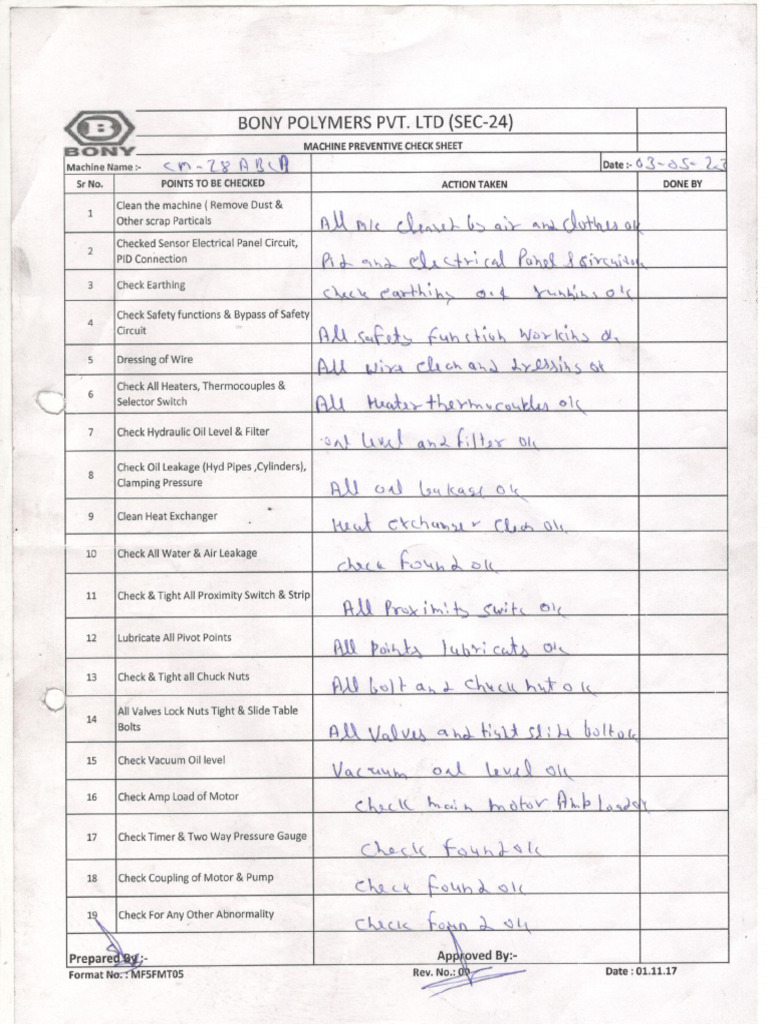 BONY POLYMERS PVT. LTD (SEC-24)
B
BONY
MACHINE PREVENTIVE CHECK SHEET
Machine Name :- CM-28 ABCD Date :- 03-05-23
Sr No. POINTS TO BE CHECKED ACTION TAKEN DONE BY
1 Clean the machine ( Remove Dust &
Other scrap Particals All M/c cleaned by air and clothes ok
2 Checked Sensor Electrical Panel Circuit,
PID Connection Pid and electrical Panel & circuit ok
3 Check Earthing check earthing and running ok
4 Check Safety functions & Bypass of Safety
Circuit All safety function working ok
5 Dressing of Wire All wire clean and dressing ok
6 Check All Heaters, Thermocouples &
Selector Switch All Heater thermocouples ok
7 Check Hydraulic Oil Level & Filter oal level and filter ok
8 Check Oil Leakage (Hyd Pipes ,Cylinders),
Clamping Pressure All oal leakage ok
9 Clean Heat Exchanger Heat exchanger clean ok
10 Check All Water & Air Leakage check found ok
11 Check & Tight All Proximity Switch & Strip All Proximity switc ok
12 Lubricate All Pivot Points All Points lubricats ok
13 Check & Tight all Chuck Nuts All bolt and chuck nut ok
14 All Valves Lock Nuts Tight & Slide Table
Bolts All valves and tight slide bolt ok
15 Check Vacuum Oil level Vacuum oal level ok
16 Check Amp Load of Motor check main motor Amp load ok
17 Check Timer & Two Way Pressure Gauge Check found ok
18 Check Coupling of Motor & Pump Check found ok
19 Check For Any Other Abnormality Check found ok
Prepared By :- Approved By:-
Format No. : MF5FMT05 Rev. No.: 00 Date : 01.11.17